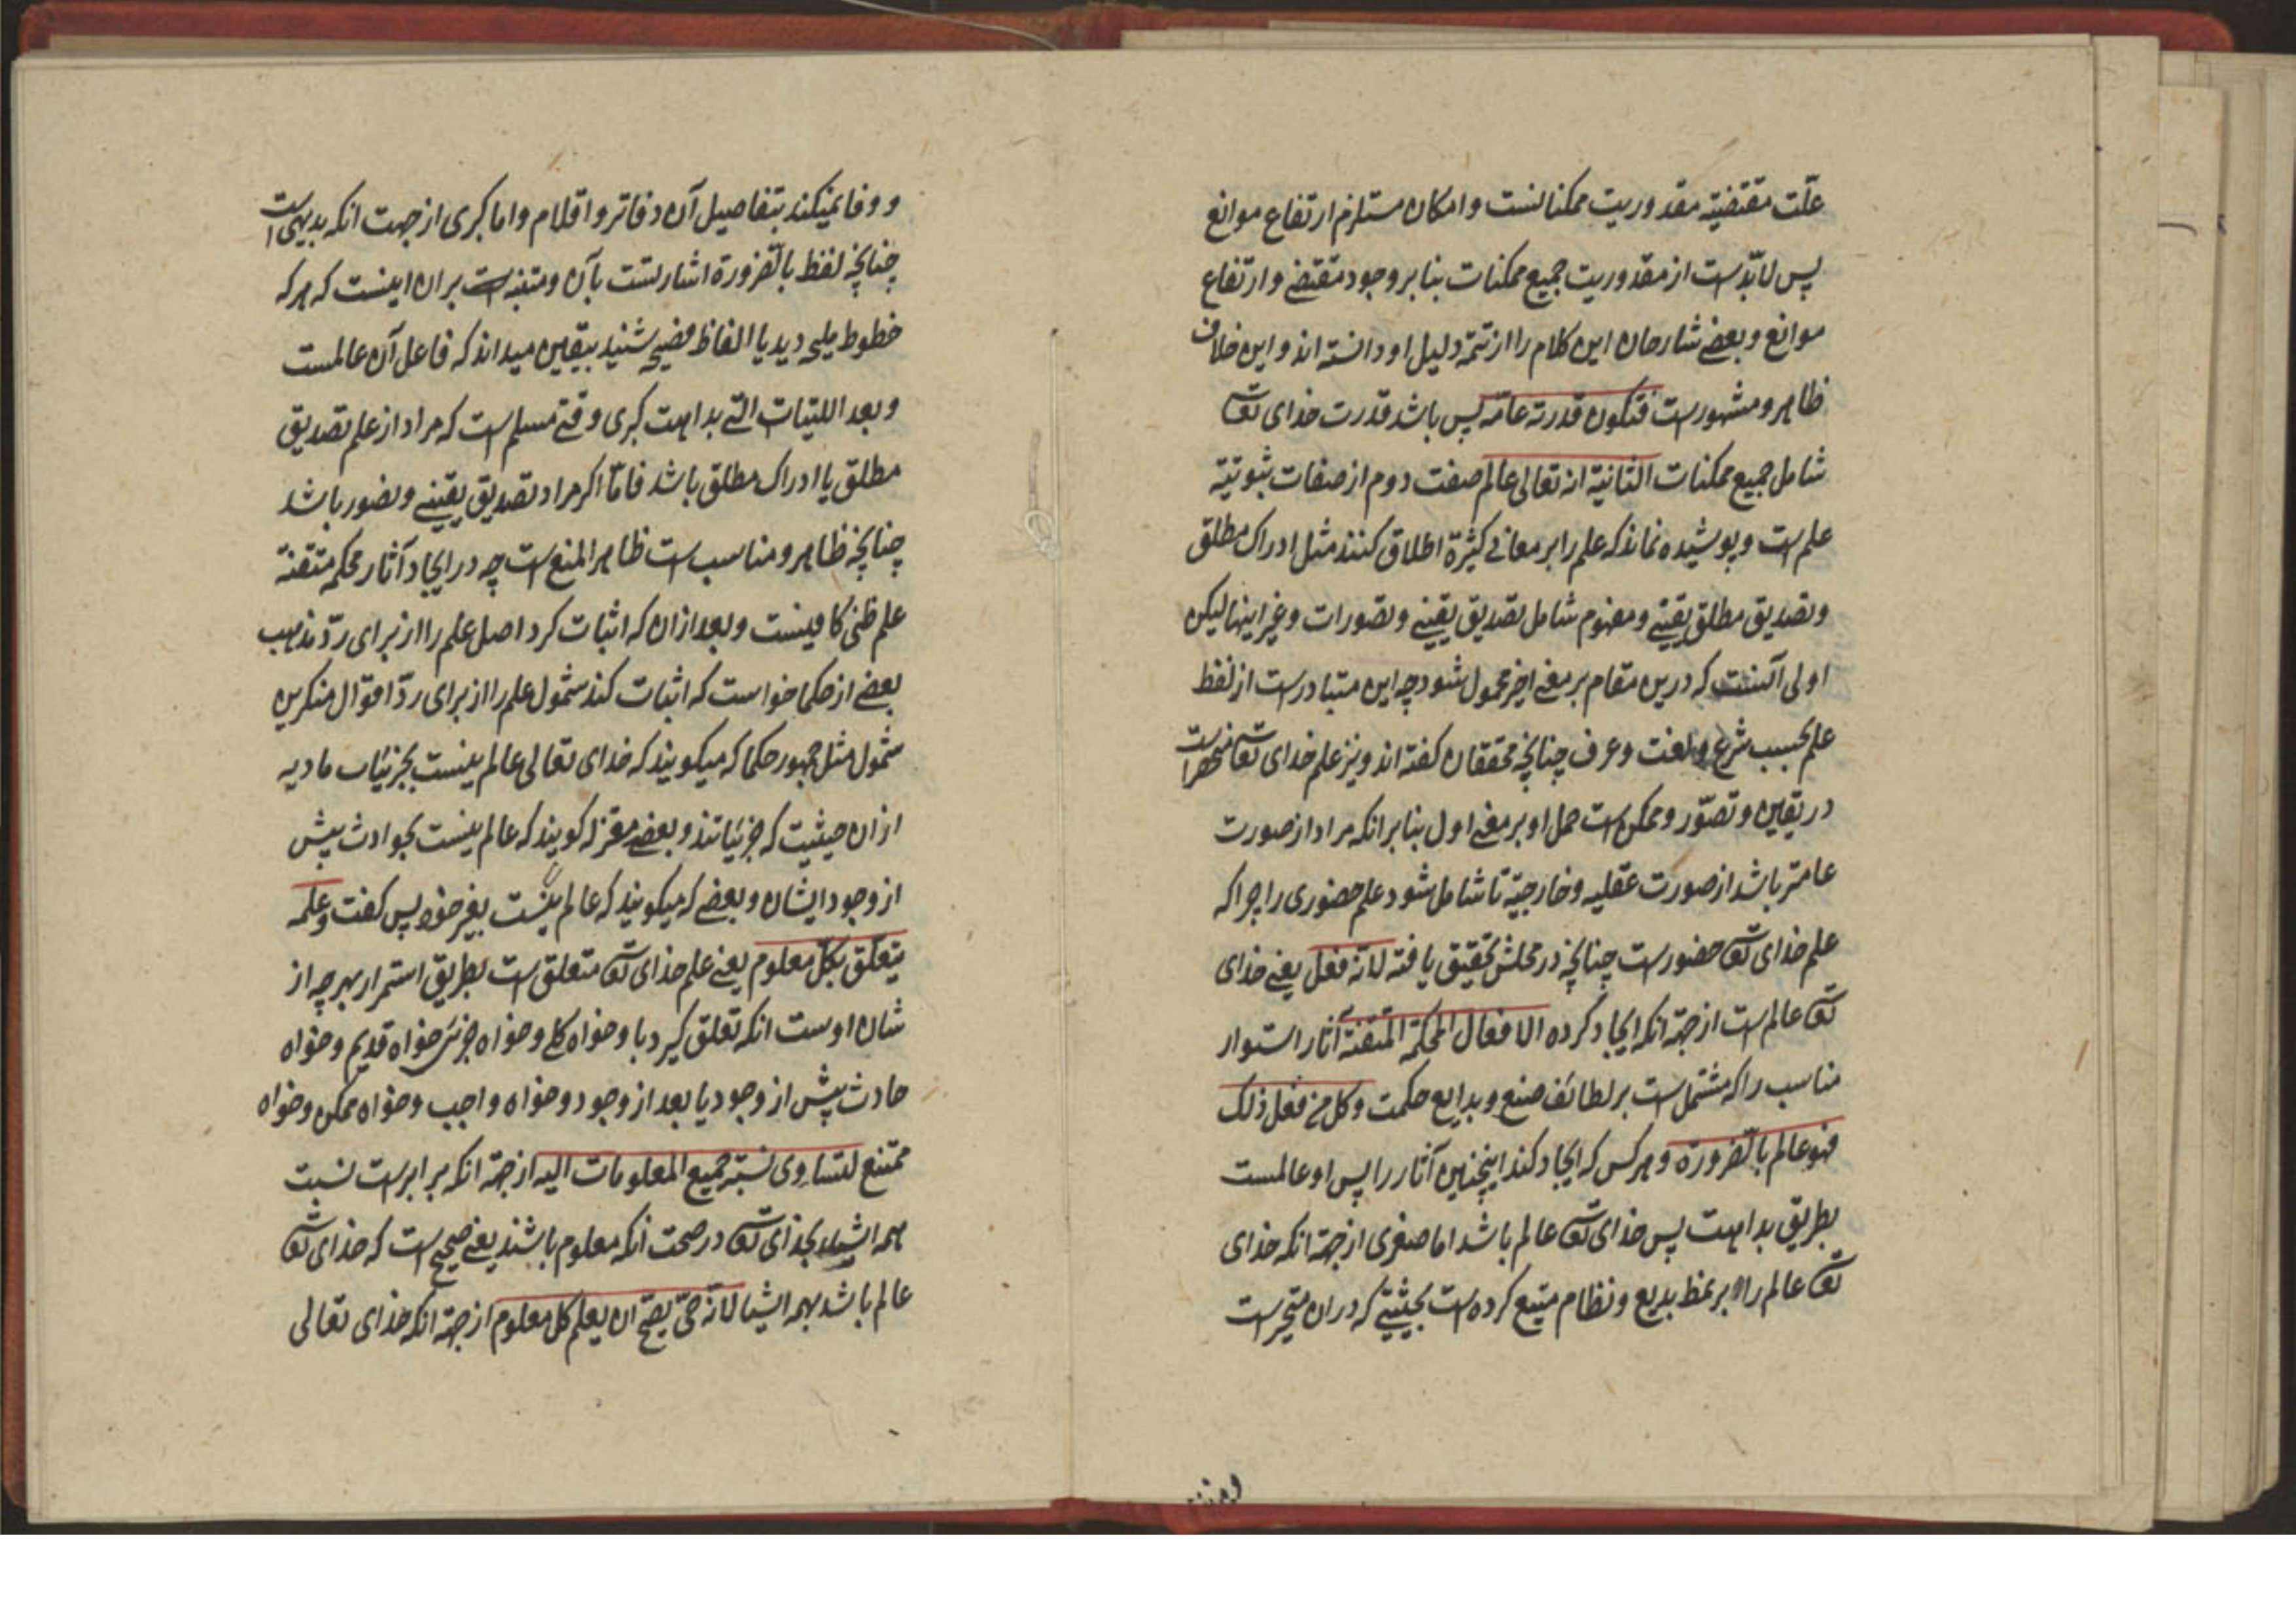 علّت مقتضیّه مقدوریت ممکنانست وامکان مستلزم ارتفاع موانع
پس لابدّست از مقدوریت جمیع ممکنات بنابر وجود مقتضے وارتفاع
موانع وبعضے شارحان این کلام را از تتمّه دلیل او دانسته اند واین خلاف
ظاهر ومشهورست فتکون قدرته عامّه پس باشد قدرت خدای تعا
شامل جمیع ممکنات الثانیّة انه تعالی عالم صفت دوم از صفات ثبوتیّه
علم است وپوشیده نماند که علم را بر معانے کثیرة اطلاق کنند مثل ادراک مطلق
وتصدیق مطلق یقینے ومفهوم شامل تصدیق یقینے وتصورات وغیر اینها لیکن
اولی آنست که درین مقام بر معنے اخیر محمول شود چه این متبادرست از لفظ
علم بحسب شرع ولغت وعرف چنانچه محققان کفته اند ونیز علم خدای تعا منحصرا ست
در یقین وتصوّر وممکن است حمل او بر معنے اول بنابر انکه مراد از صورت
عامتر باشد از صورت عقلیه وخارجیّه تا شامل شود علم حضوری را چرا که
علم خدای تعا حضورست چنانچه در محلش تحقیق یافته لانّه فعل یعنے خدای
تعا عالم است از جهة انکه ایجاد کرده الافعال المحکمة المتقنة آثار استوار
مناسب را که مشتمل است بر لطائف صنع وبدایع حکمت وکل من فعل ذلک
فهو عالم بالضّرورة وهر کس که ایجاد کند اینچنین آثار را پس او عالمست
بطریق بداهت پس خدای تعا عالم باشد اما صغری از جهة انکه خدای
تعا عالم را بر نمط بدیع ونظام منیع کرده است بحیثیتے که دران متحیرست
ووفا نمیکند بتفاصیل آن دفاتر واقلام واما کبری از جهت انکه بدیهی ا ست
چنانچه لفظ بالضّرورة اشارتست بآن ومتنبه است بران اینست که هر که
خطوط ملیحه دید یا الفاظ فصیحه شنید بیقین میداند که فاعل آن عالمست
وبعد اللتیات التے بداهت کبری وقتے مسلم است که مراد از علم تصدیق
مطلق یا ادراک مطلق باشد فامّا اکر مراد تصدیق یقینے وتصور باشد
چنانچه ظاهر ومناسب است ظاهر المنع است چه در ایجاد آثار محکمه متقنة
علم ظنی کافیست وبعد ازان که اثبات کرد اصل علم را از برای ردّ مذهب
بعضے از حکما خواست که اثبات کند شمول علم را از برای ردّ اقوال منکرین
شمول مثل جمهور حکما که میکویند که خدای تعالی عالم نیست بجزئیات مادیه
ازان حیثیت که جزئیاتند وبعضے معتزله کویند که عالم نیست بحوادث پیش
از وجود ایشان وبعضے که میکویند که عالم نیست بغیر خود پس کفت وعلمه
یتعلّق بکلّ معلوم یعنے علم خدای تعا متعلق است بطریق استمرار بهر چه از
شان اوست انکه تعلق کیرد باو خواه کلے وخواه جزئی خواه قدیم وخواه
حادث پیش از وجود یا بعد از وجود وخواه واجب وخواه ممکن وخواه
ممتنع لتساوی نسبة جمیع المعلومات الیه از جهة انکه برابرست نسبت
همه اشیا بخدای تعا در صحت انکه معلوم باشند یعنے صحیح است که خدای تعا
عالم باشد بهمه اشیا لانّه حیّ یصحّ ان یعلم کل معلوم از جهة انکه خدای تعالی